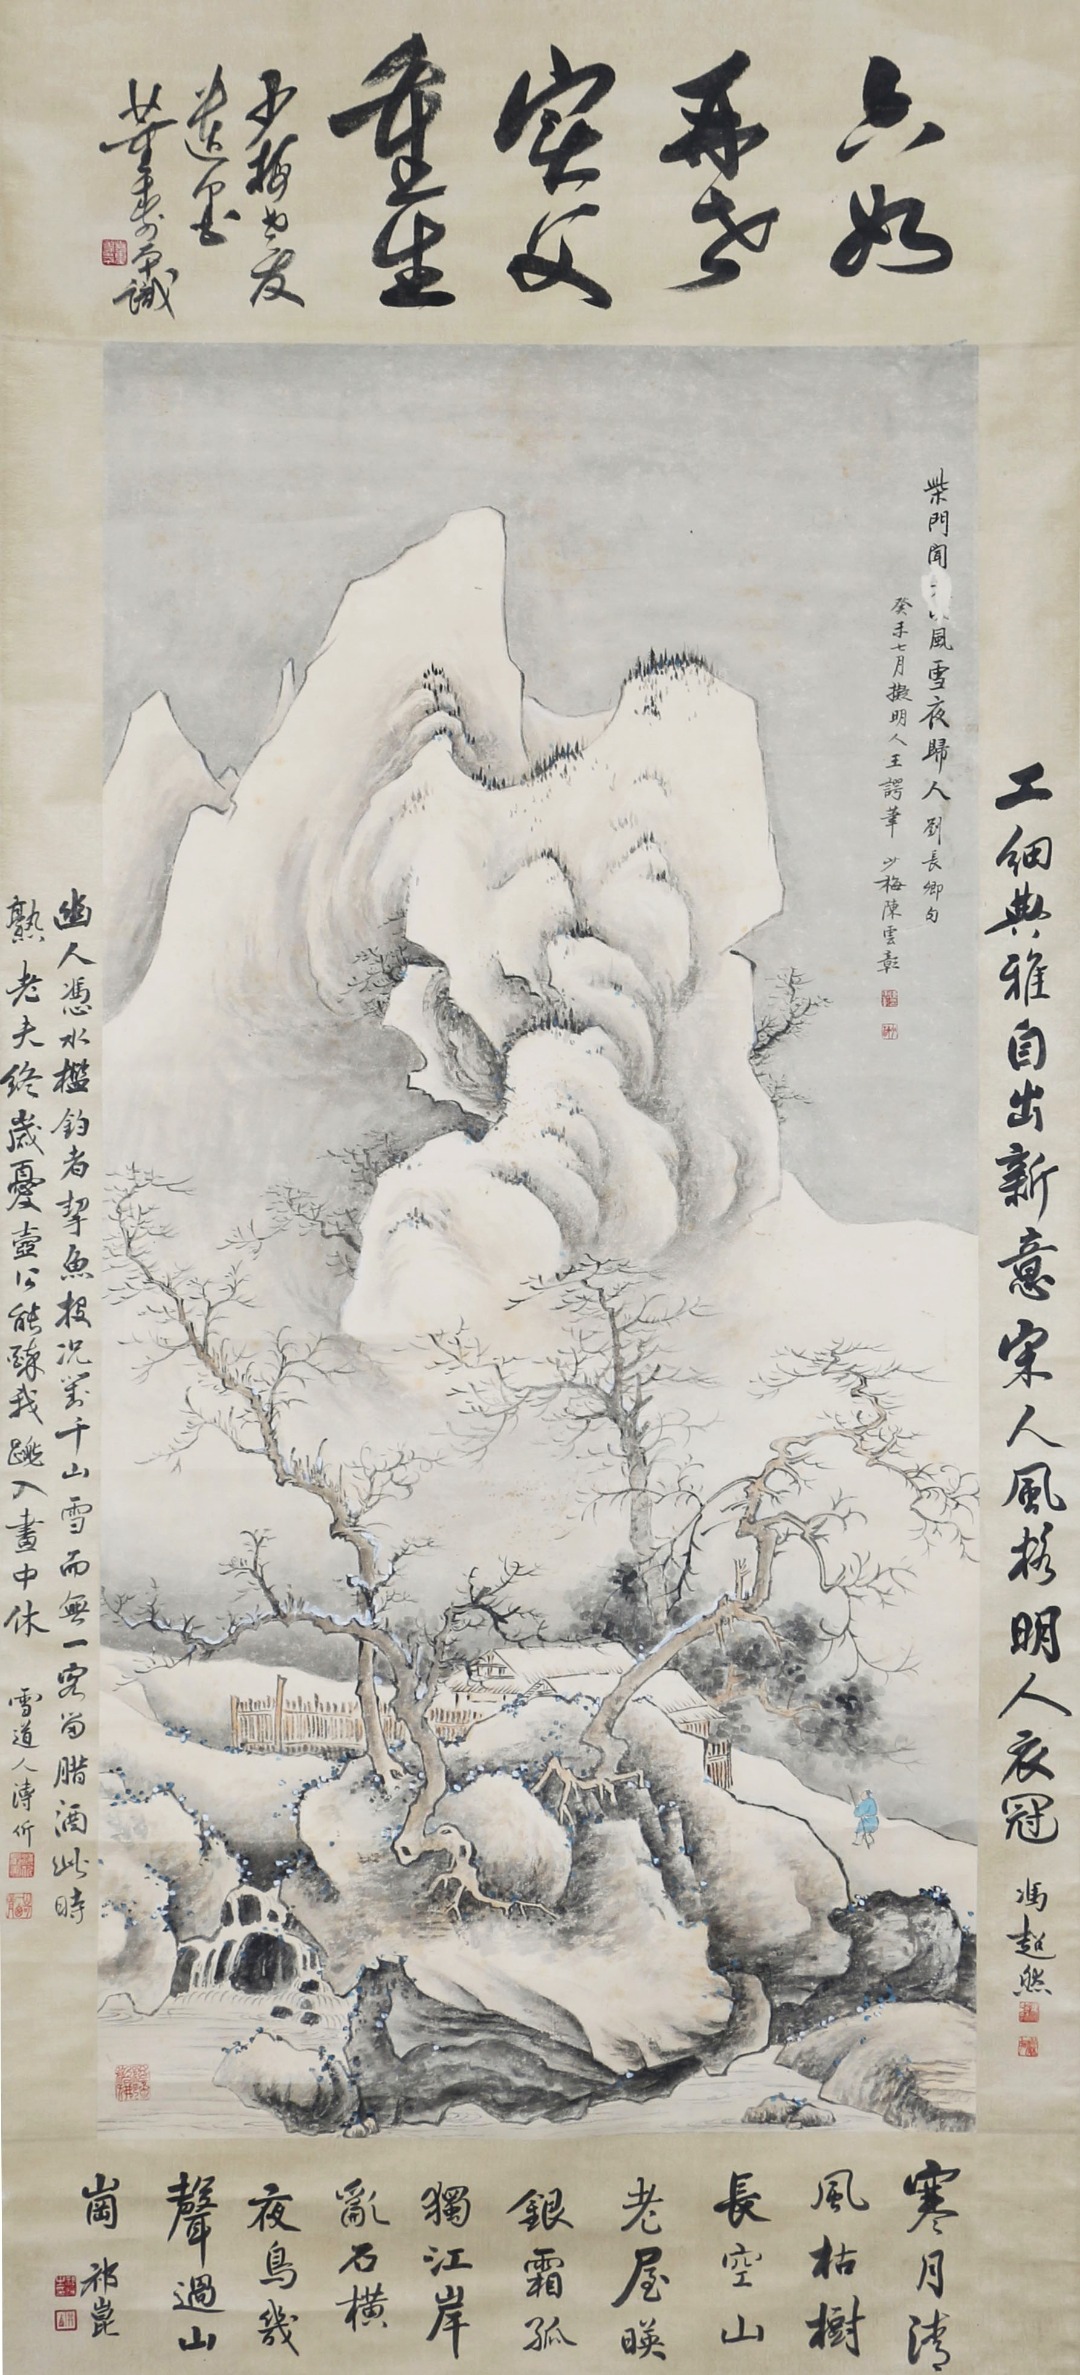 六如
再世
實父
重生
少梅老友
遺墨
董壽平識
柴門聞 風雪夜歸人 劉長卿句
癸未七月擬明人王諤筆 少梅陳雲彰
工細典雅自出新意宋人風格明人衣冠 馮超然
幽人憑水檻釣者挈魚投況對千山雪而無一客留臘酒此時
熟老夫終歲憂壺公能踈我跳入畫中休 雪道人溥伒
寒月清
風枯樹
長空山
老屋暎
銀霜孤
獨江岸
亂石橫
夜鳥幾
聲過山
崗 祁崑